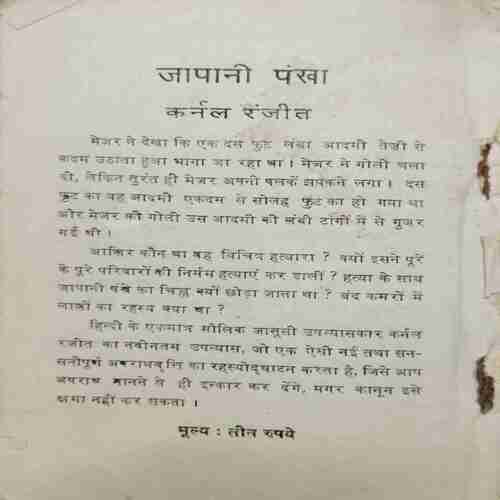 जापानी पंखा
कर्नल रंजीत
मेजर ने देखा कि एक दस फुट लंबा आदमी तेज़ी से
कदम उठाता हुआ भागा जा रहा था। मेजर ने गोली चला
दी, लेकिन तुरंत ही मेजर अपनी पलकें झपकने लगा। दस
फुट का वह आदमी एकदम से सोलह फुट का हो गया था
और मेजर की गोली उस आदमी की लंबी टांगों में से गुजर
गई थी।
आखिर कौन था वह विचित्र हत्यारा? क्यों इसने पूरे
के पूरे परिवारों की निर्मम हत्याएं कर डालीं? हत्या के साथ
जापानी पंखे का चिह्न क्यों छोड़ा जाता था? बंद कमरों में
लाशों का रहस्य क्या था?
हिन्दी के एकमात्र मौलिक जासूसी उपन्यासकार कर्नल
रंजीत का नवीनतम उपन्यास, जो एक ऐसी नई तथा सन-
सनीपूर्ण अपराधवृत्ति का रहस्योद्घाटन करता है, जिसे आप
अपराध मानने से ही इन्कार कर देंगे, मगर कानून इसे
क्षमा नहीं कर सकता।
मूल्य : तीन रुपये